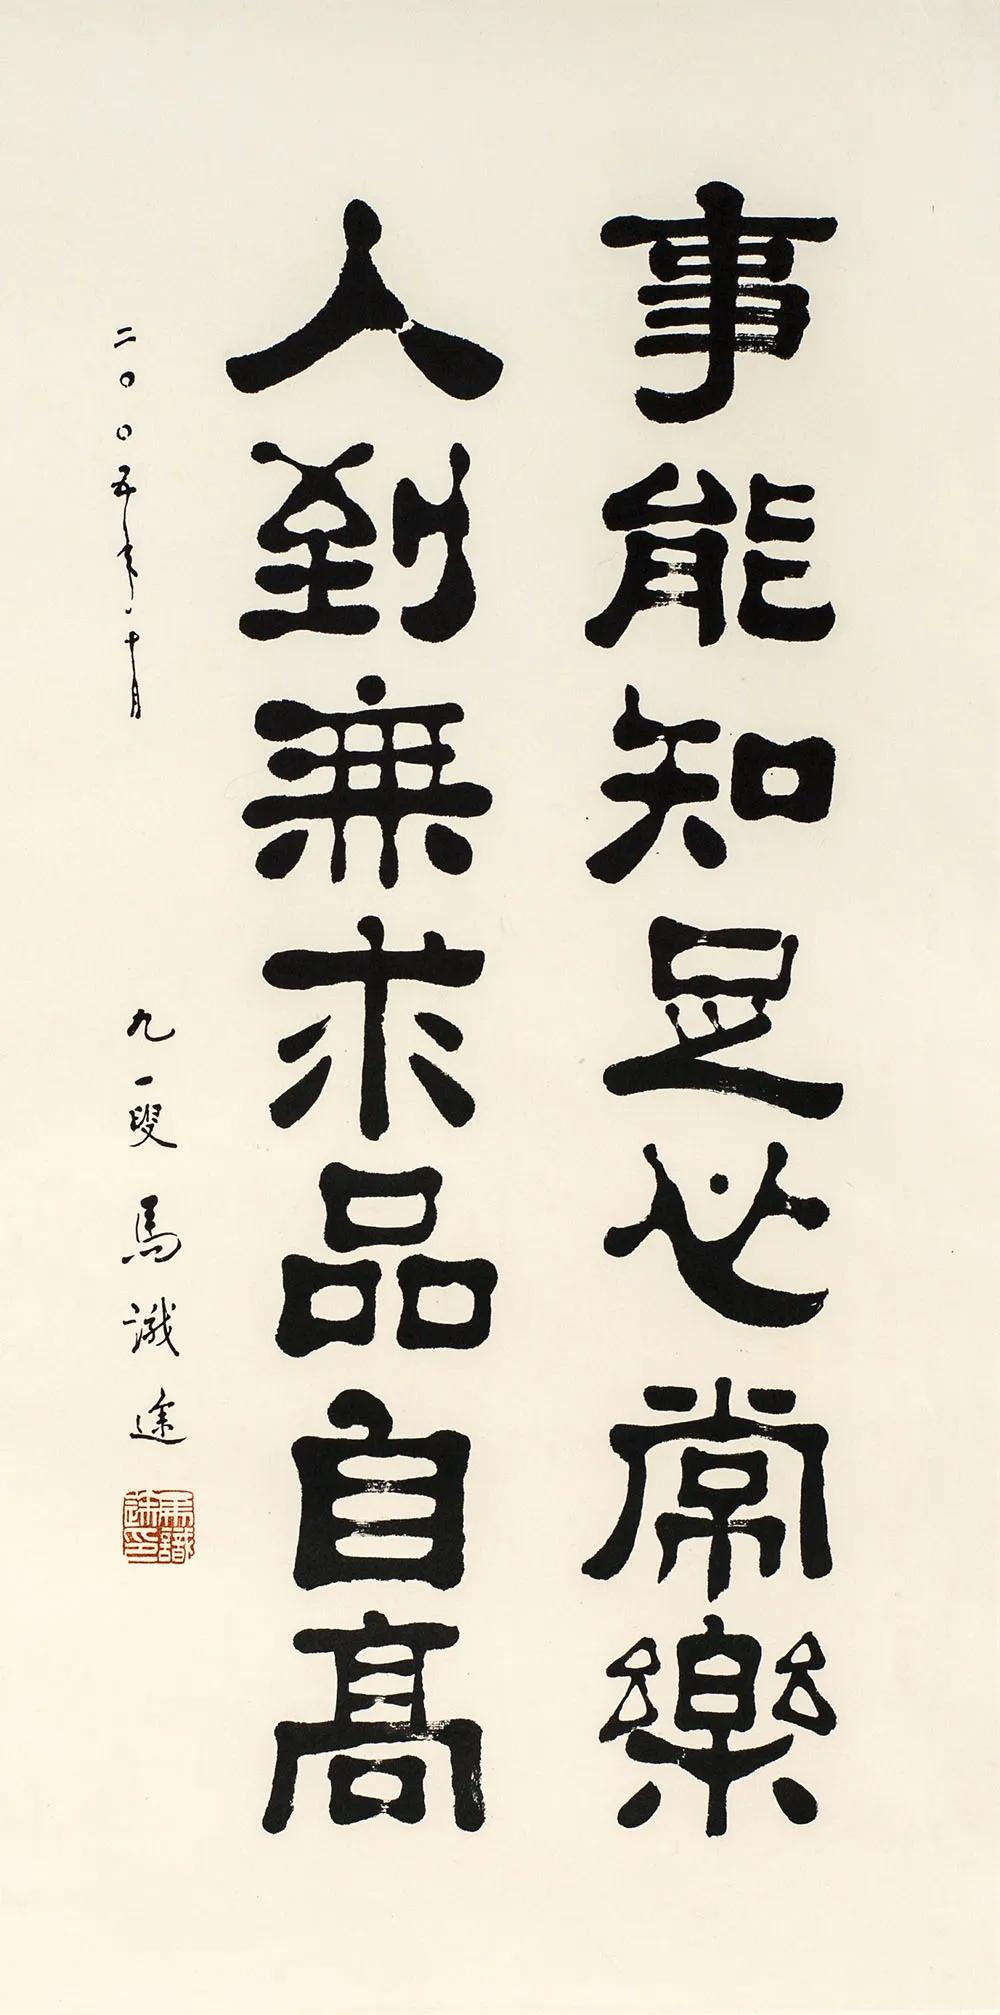 事能知足心常樂
人到無求品自高
二〇〇五年十月
九一叟馬識途
馬識途印